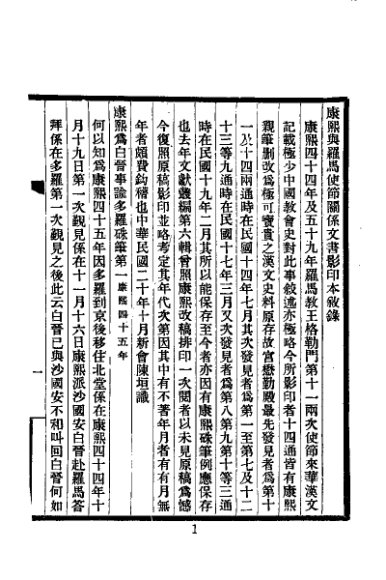 康熙與羅馬使節關係文書影印本敘錄
康熙四十四年及五十九年羅馬教王格勒門第十一兩次使節來華漢文
記載極少中國教會史對此事敘述亦極略今所影印者十四通皆有康熙
親筆刪改爲極可寶貴之漢文史料原存故宮懋勤殿最先發見者爲第十
一及十四兩通時在民國十四年七月其次發見者爲第一至第七及十二
十三等九通時在民國十七年三月又次發見者爲第八第九第十等三通
時在民國十九年二月其所以能保存至今者亦因有康熙硃筆例應保存
也去年文獻叢編第六輯曾照康熙改稿排印一次閱者以未見原稿爲憾
今復照原稿影印並略考定其年代次第因其中有不著年月者有有月無
年者頗費鈎稽也中華民國二十年十月新會陳垣識
康熙爲白晉事諭多羅硃筆第一 康熙四十五年
何以知爲康熙四十五年因多羅到京後移住北堂係在康熙四十四年十
月十九日第一次觀見係在十一月十六日康熙派沙國安白晉赴羅馬答
拜係在多羅第一次觀見之後此云白晉已與沙國安不和叫回白晉何如
一
1